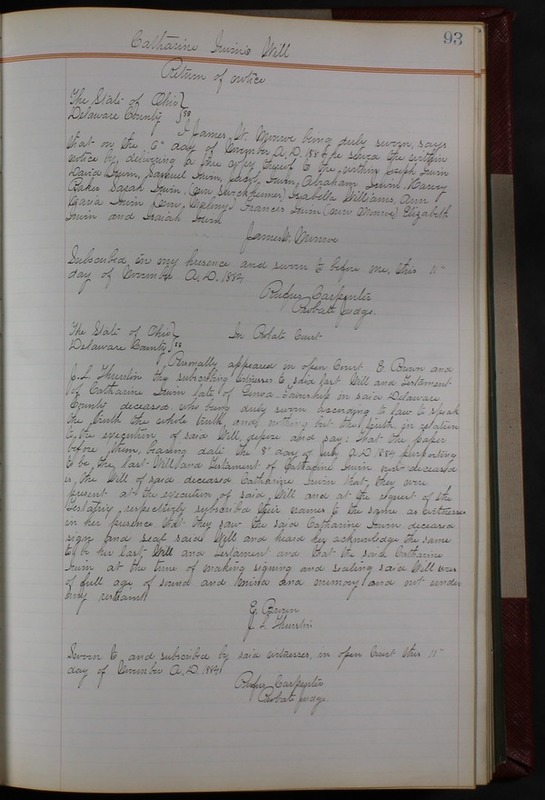 93
Catharine Irwin's Will
Return of notice
The State of Ohio }
Delaware County } ss
I James W. Monroe being duly sworn, says
that on the 6" day of November A.D. 1884 he served the within
notice by delivering a true copy thereof to the within Joseph Irwin
David Irwin, Samuel Irwin, Irwin, Abraham Irwin, Nancy
Baker Sarah Irwin, (now ) Isabella Williams, Ann
Maria Irwin (now ) Frances Irwin (now Monroe) Elizabeth
Irwin and Isaiah Irwin
James W. Monroe
Subscribed in my presence and sworn to before me, this 11"
day of November A.D. 1884
Rufus Carpenter
Probate Judge.
The State of Ohio } In Probate Court
Delaware County } ss
Personally appeared in open Court E. Brown and
J. L. Thurston the subscribing witnesses to said last Will and Testament
of Catharine Irwin late of Genoa Township in said Delaware
County deceased, who being duly sworn according to law to speak
the truth the whole truth and nothing but the truth, in relation
to the execution of said Will, depose and say: That the paper
before them, bearing date the 8" day of July A.D. 1884 purporting
to be the last Will and Testament of Catharine Irwin now deceased
is the Will of said deceased Catharine Irwin that they were
present at the execution of said Will and at the request of the
Testatrix respectively subscribed their names to the same as witnesses
in her presence that they saw the said Catharine Irwin deceased
sign and seal said Will and heard her acknowledge the same
to be her last Will and Testament and that the said Catharine
Irwin at the time of making signing and sealing said Will was
of full age of sound and mind and memory and not under
any restraint
E. Brown
J. L. Thurston
Sworn to and subscribed by said witnesses, in open Court this 11"
day of November A.D. 1884
Rufus Carpenter
Probate Judge.